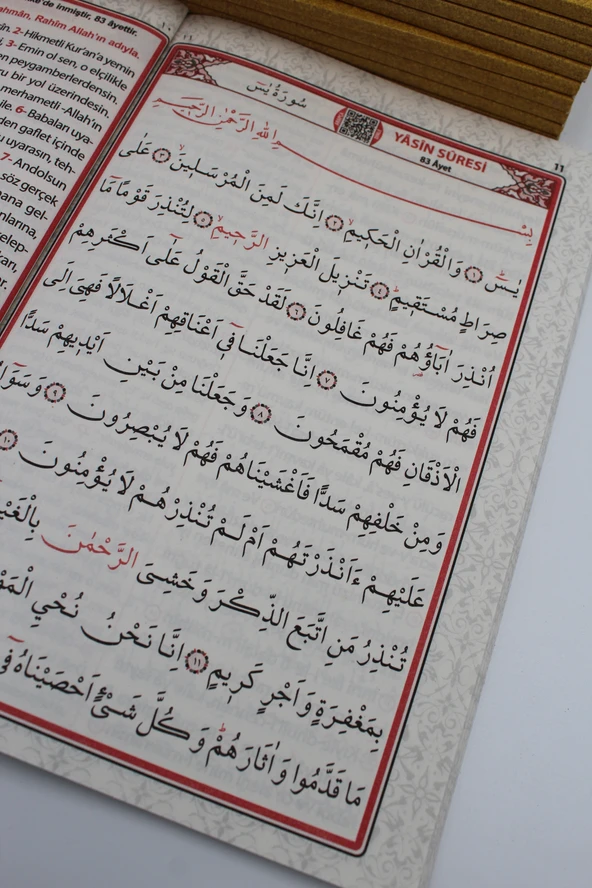 de inmiştir, 83 âyettir.
Rahîm Allah'ın adıyla.
2- Hikmetli Kur'an'a yemin
3- Emin ol sen, o elçilikle
peygamberlerdensin.
bir yol üzerindesin.
merhametli -Allah'ın
6- Babaları uya-
gaflet içinde
uyarasın, teh-
7- Andolsun
söz gerçek
11
سُورَةُ يٰسٓ
YÂSİN SÛRESİ
83 Âyet
11
بِسْمِ اللّٰهِ الرَّحْمٰنِ الرَّحِيمِ
يٰسٓ ﴿١﴾ وَالْقُرْاٰنِ الْحَكِيمِ ﴿٢﴾ اِنَّكَ لَمِنَ الْمُرْسَلِينَ ﴿٣﴾ عَلٰى
صِرَاطٍ مُسْتَقِيمٍ ﴿٤﴾ تَنْزِيلَ الْعَزِيزِ الرَّحِيمِ ﴿٥﴾ لِتُنْذِرَ قَوْمًا مَٓا
اُنْذِرَ اٰبَٓاؤُهُمْ فَهُمْ غَافِلُونَ ﴿٦﴾ لَقَدْ حَقَّ الْقَوْلُ عَلٰٓى اَكْثَرِهِمْ
فَهُمْ لَا يُؤْمِنُونَ ﴿٧﴾ اِنَّا جَعَلْنَا فِٓي اَعْنَاقِهِمْ اَغْلَالًا فَهِيَ اِلَى
الْاَذْقَانِ فَهُمْ مُقْمَحُونَ ﴿٨﴾ وَجَعَلْنَا مِنْ بَيْنِ اَيْدِيهِمْ سَدًّا
وَمِنْ خَلْفِهِمْ سَدًّا فَاَغْشَيْنَاهُمْ فَهُمْ لَا يُبْصِرُونَ ﴿٩﴾ وَسَوَٓا
عَلَيْهِمْ ءَاَنْذَرْتَهُمْ اَمْ لَمْ تُنْذِرْهُمْ لَا يُؤْمِنُونَ ﴿١٠﴾
تُنْذِرُ مَنِ اتَّبَعَ الذِّكْرَ وَخَشِيَ الرَّحْمٰنَ بِالْغَيْ
بِمَغْفِرَةٍ وَاَجْرٍ كَرِيمٍ ﴿١١﴾ اِنَّا نَحْنُ نُحْيِ الْمَوْ
مَا قَدَّمُوا وَاٰثَارَهُمْ وَكُلَّ شَيْءٍ اَحْصَيْنَاهُ فِٓي